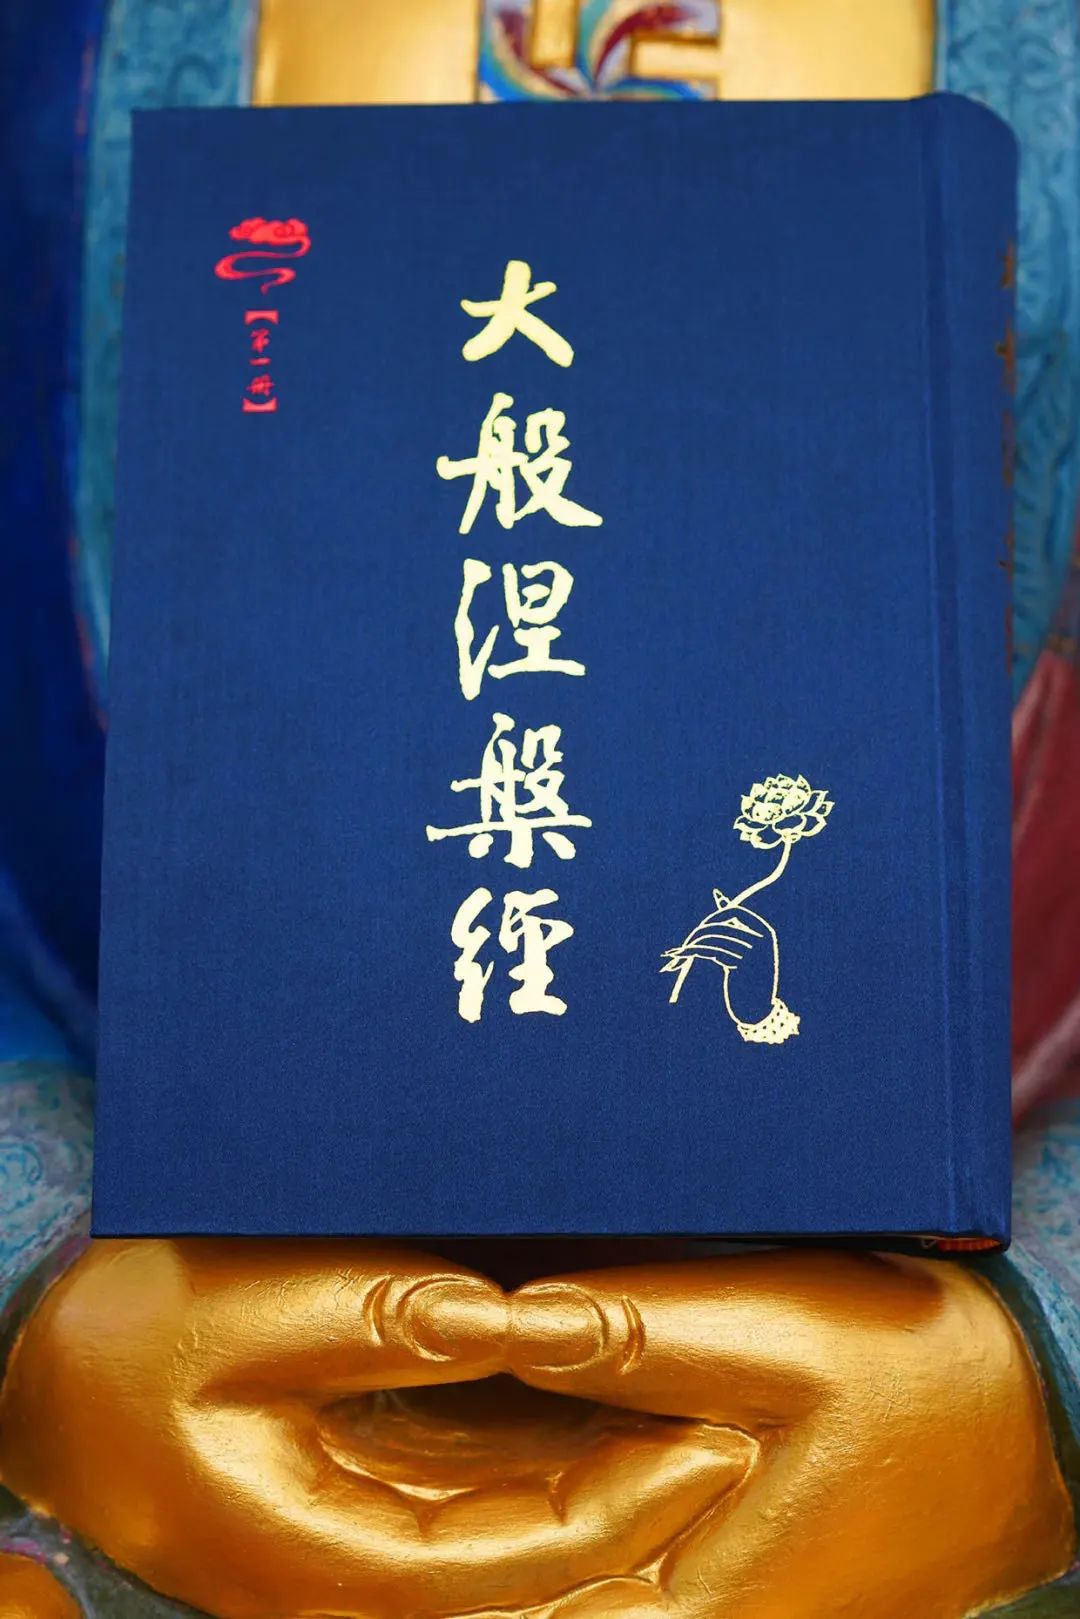 大般涅槃经
【第一册】